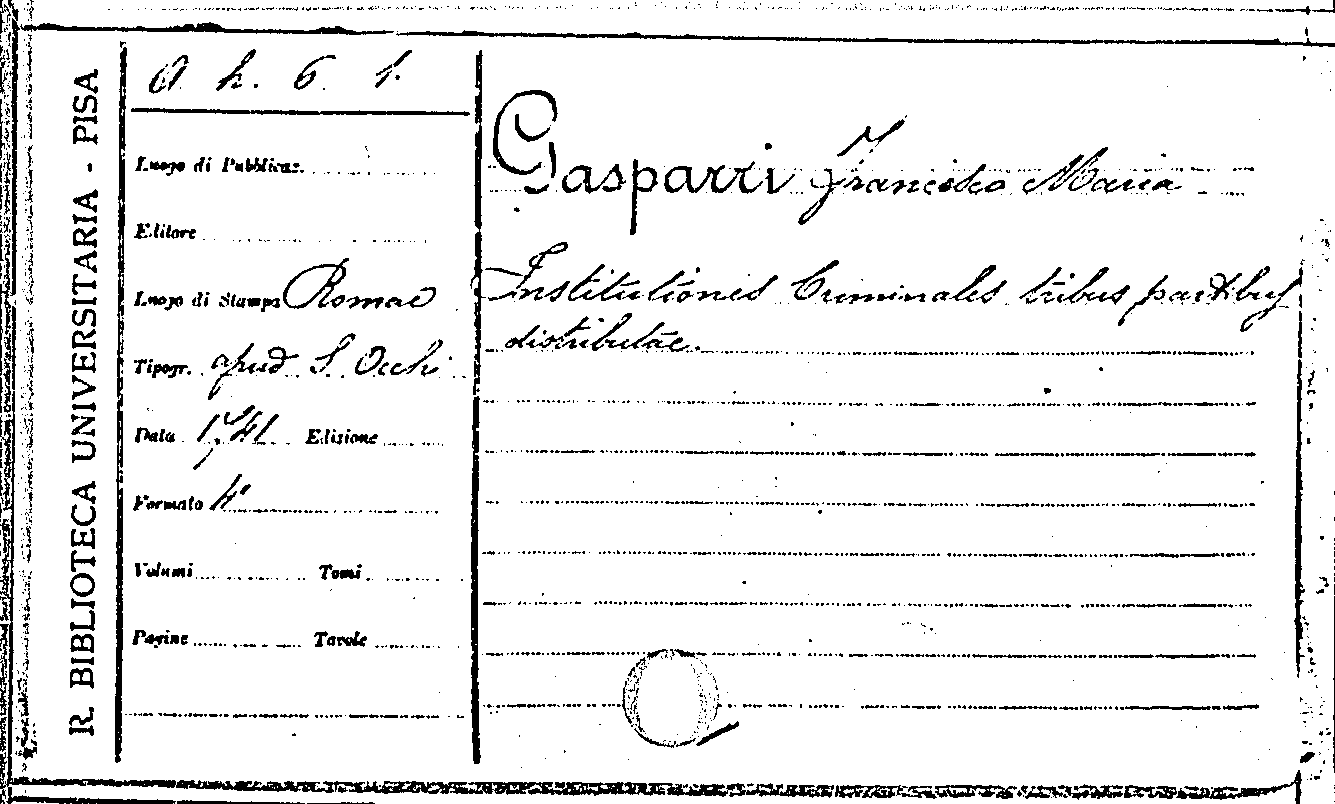 R. BIBLIOTECA UNIVERSITARIA - PISA
O. h. 6. 1.
Luogo di Pubblicaz.
Editore
Luogo di Stampa Romae
Tipogr. apud S. Occhi
Data 1741 Edizione
Formato 4°
Volumi Tomi
Pagine Tavole
Gasparri Francisco Maria
Institutiones Criminales tribus partibus
distributae.